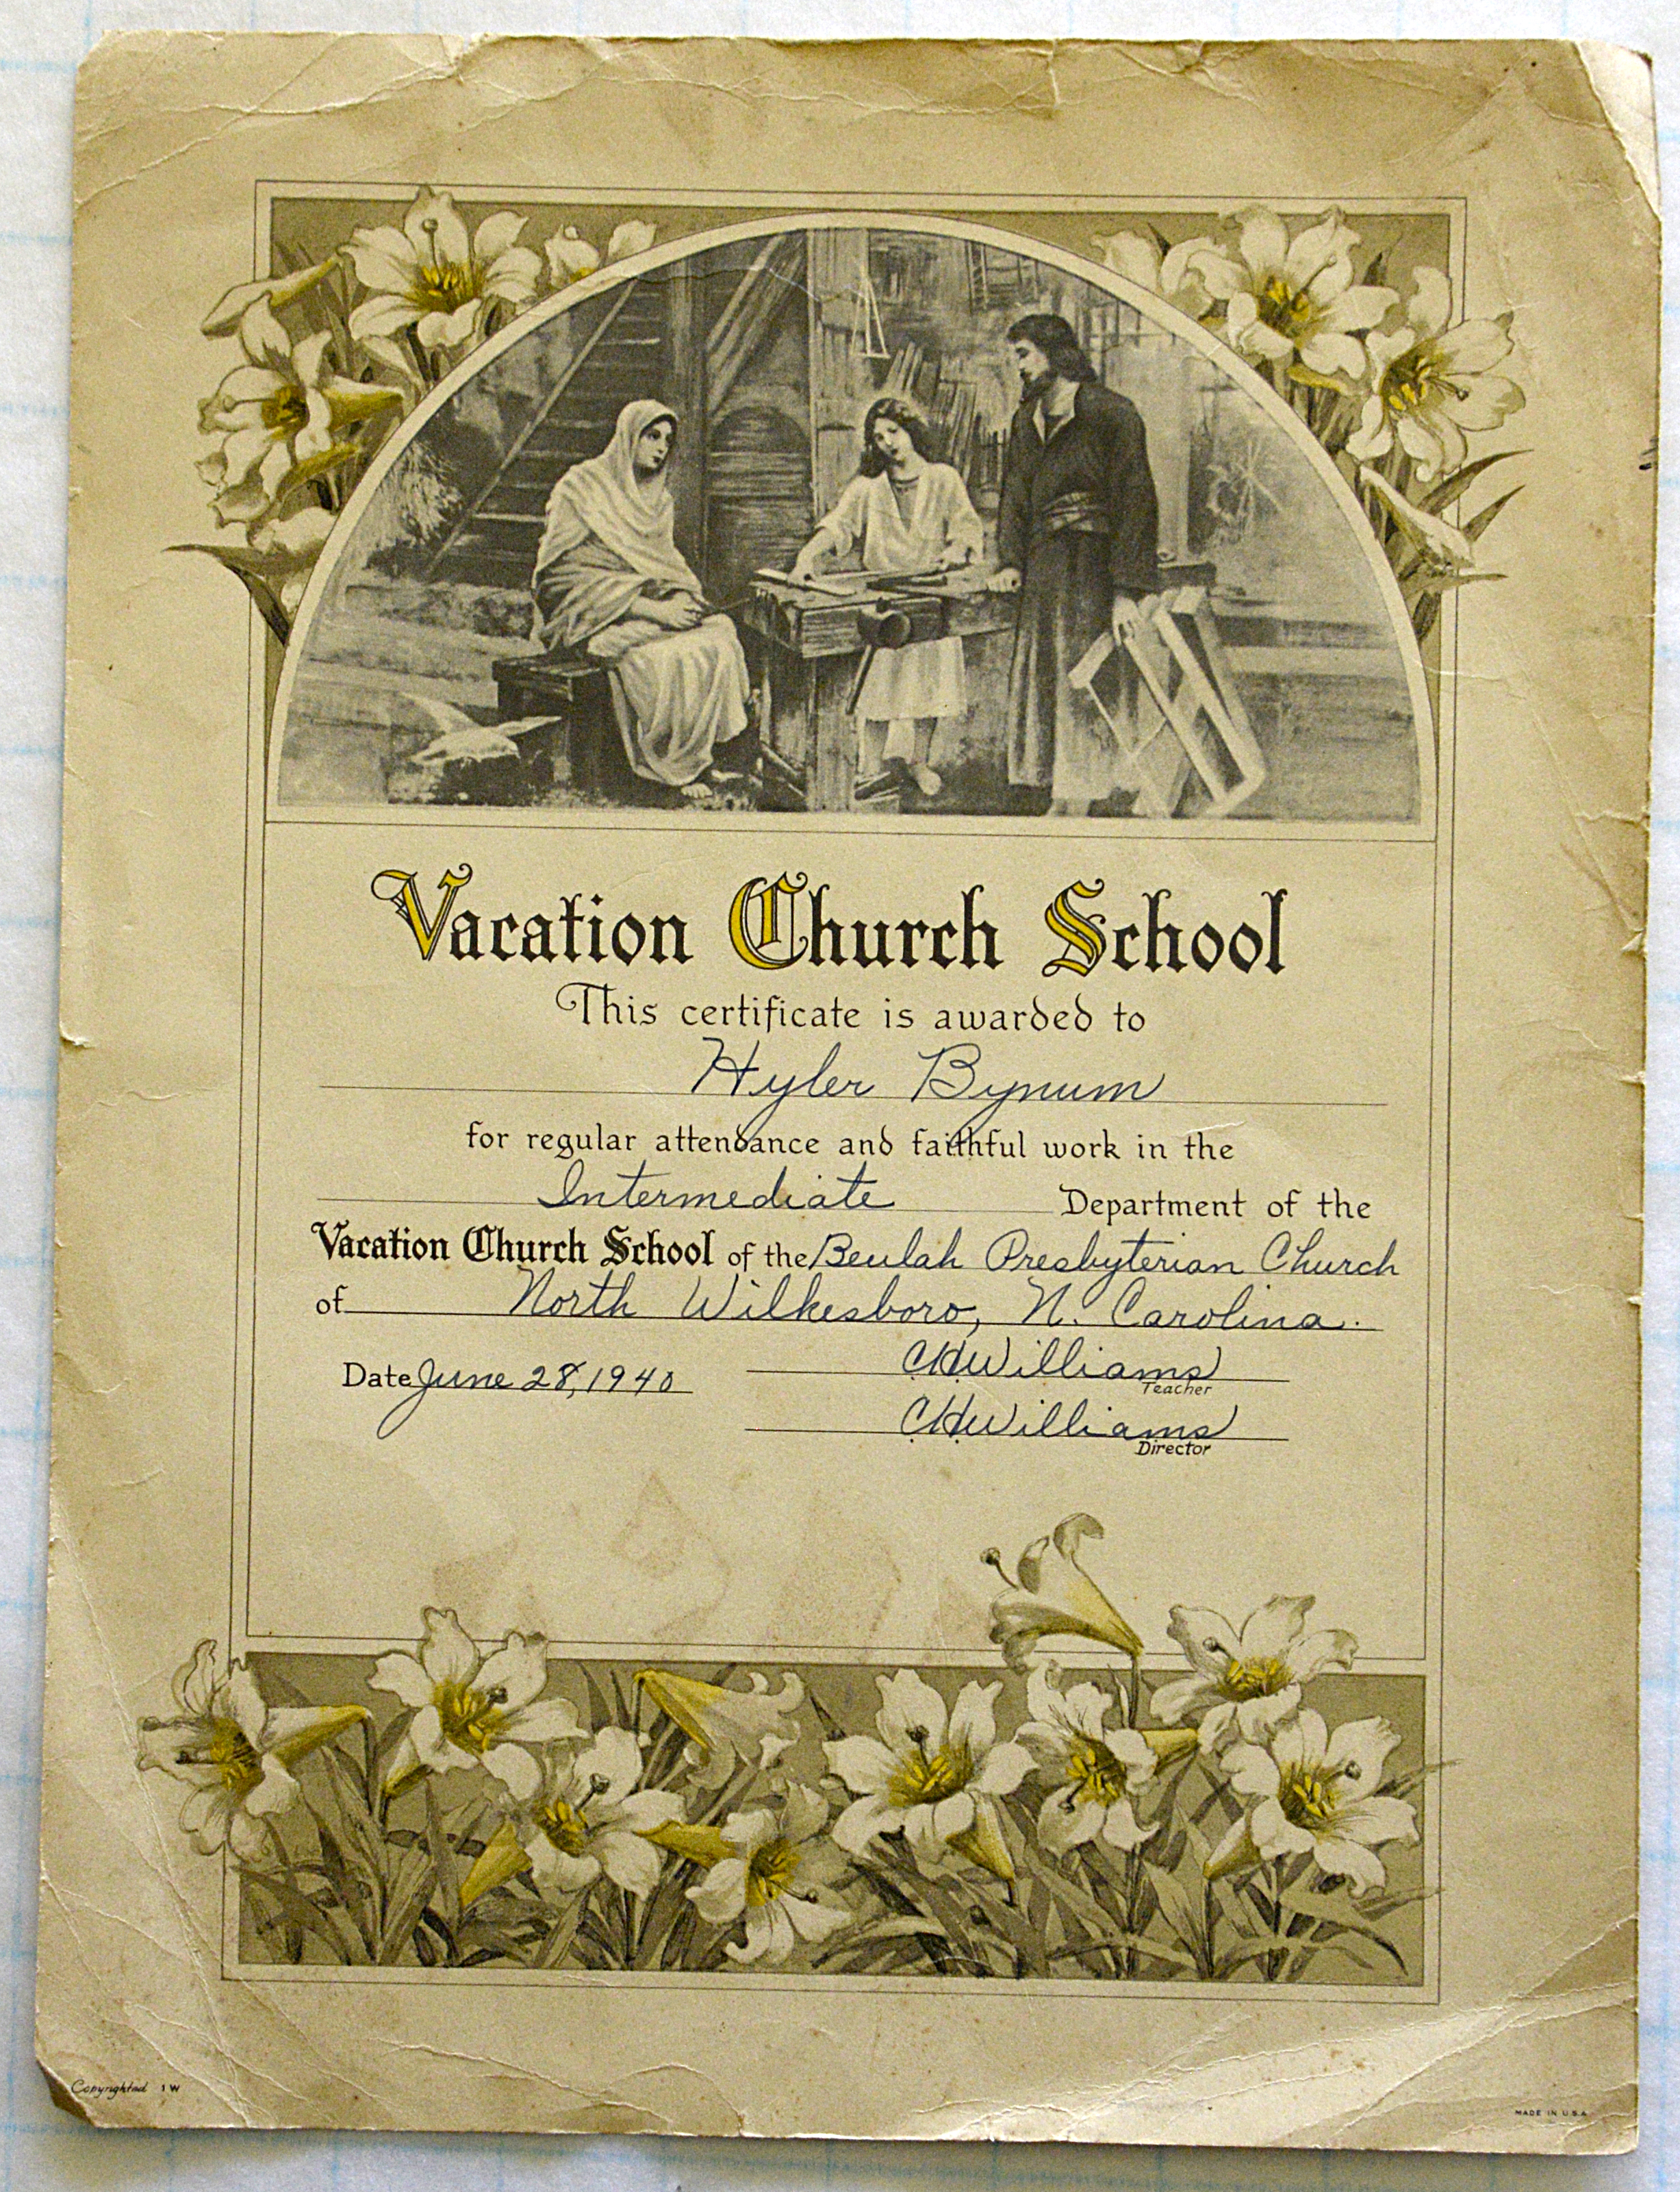 Vacation Church School
This certificate is awarded to
Hyler Bynum
for regular attendance and faithful work in the
Intermediate Department of the
Vacation Church School of the Beulah Presbyterian Church
of North Wilkesboro, N. Carolina.
Date June 28, 1940
CHWilliams
Teacher
CHWilliams
Director
Copyrighted 1 W
MADE IN U.S.A